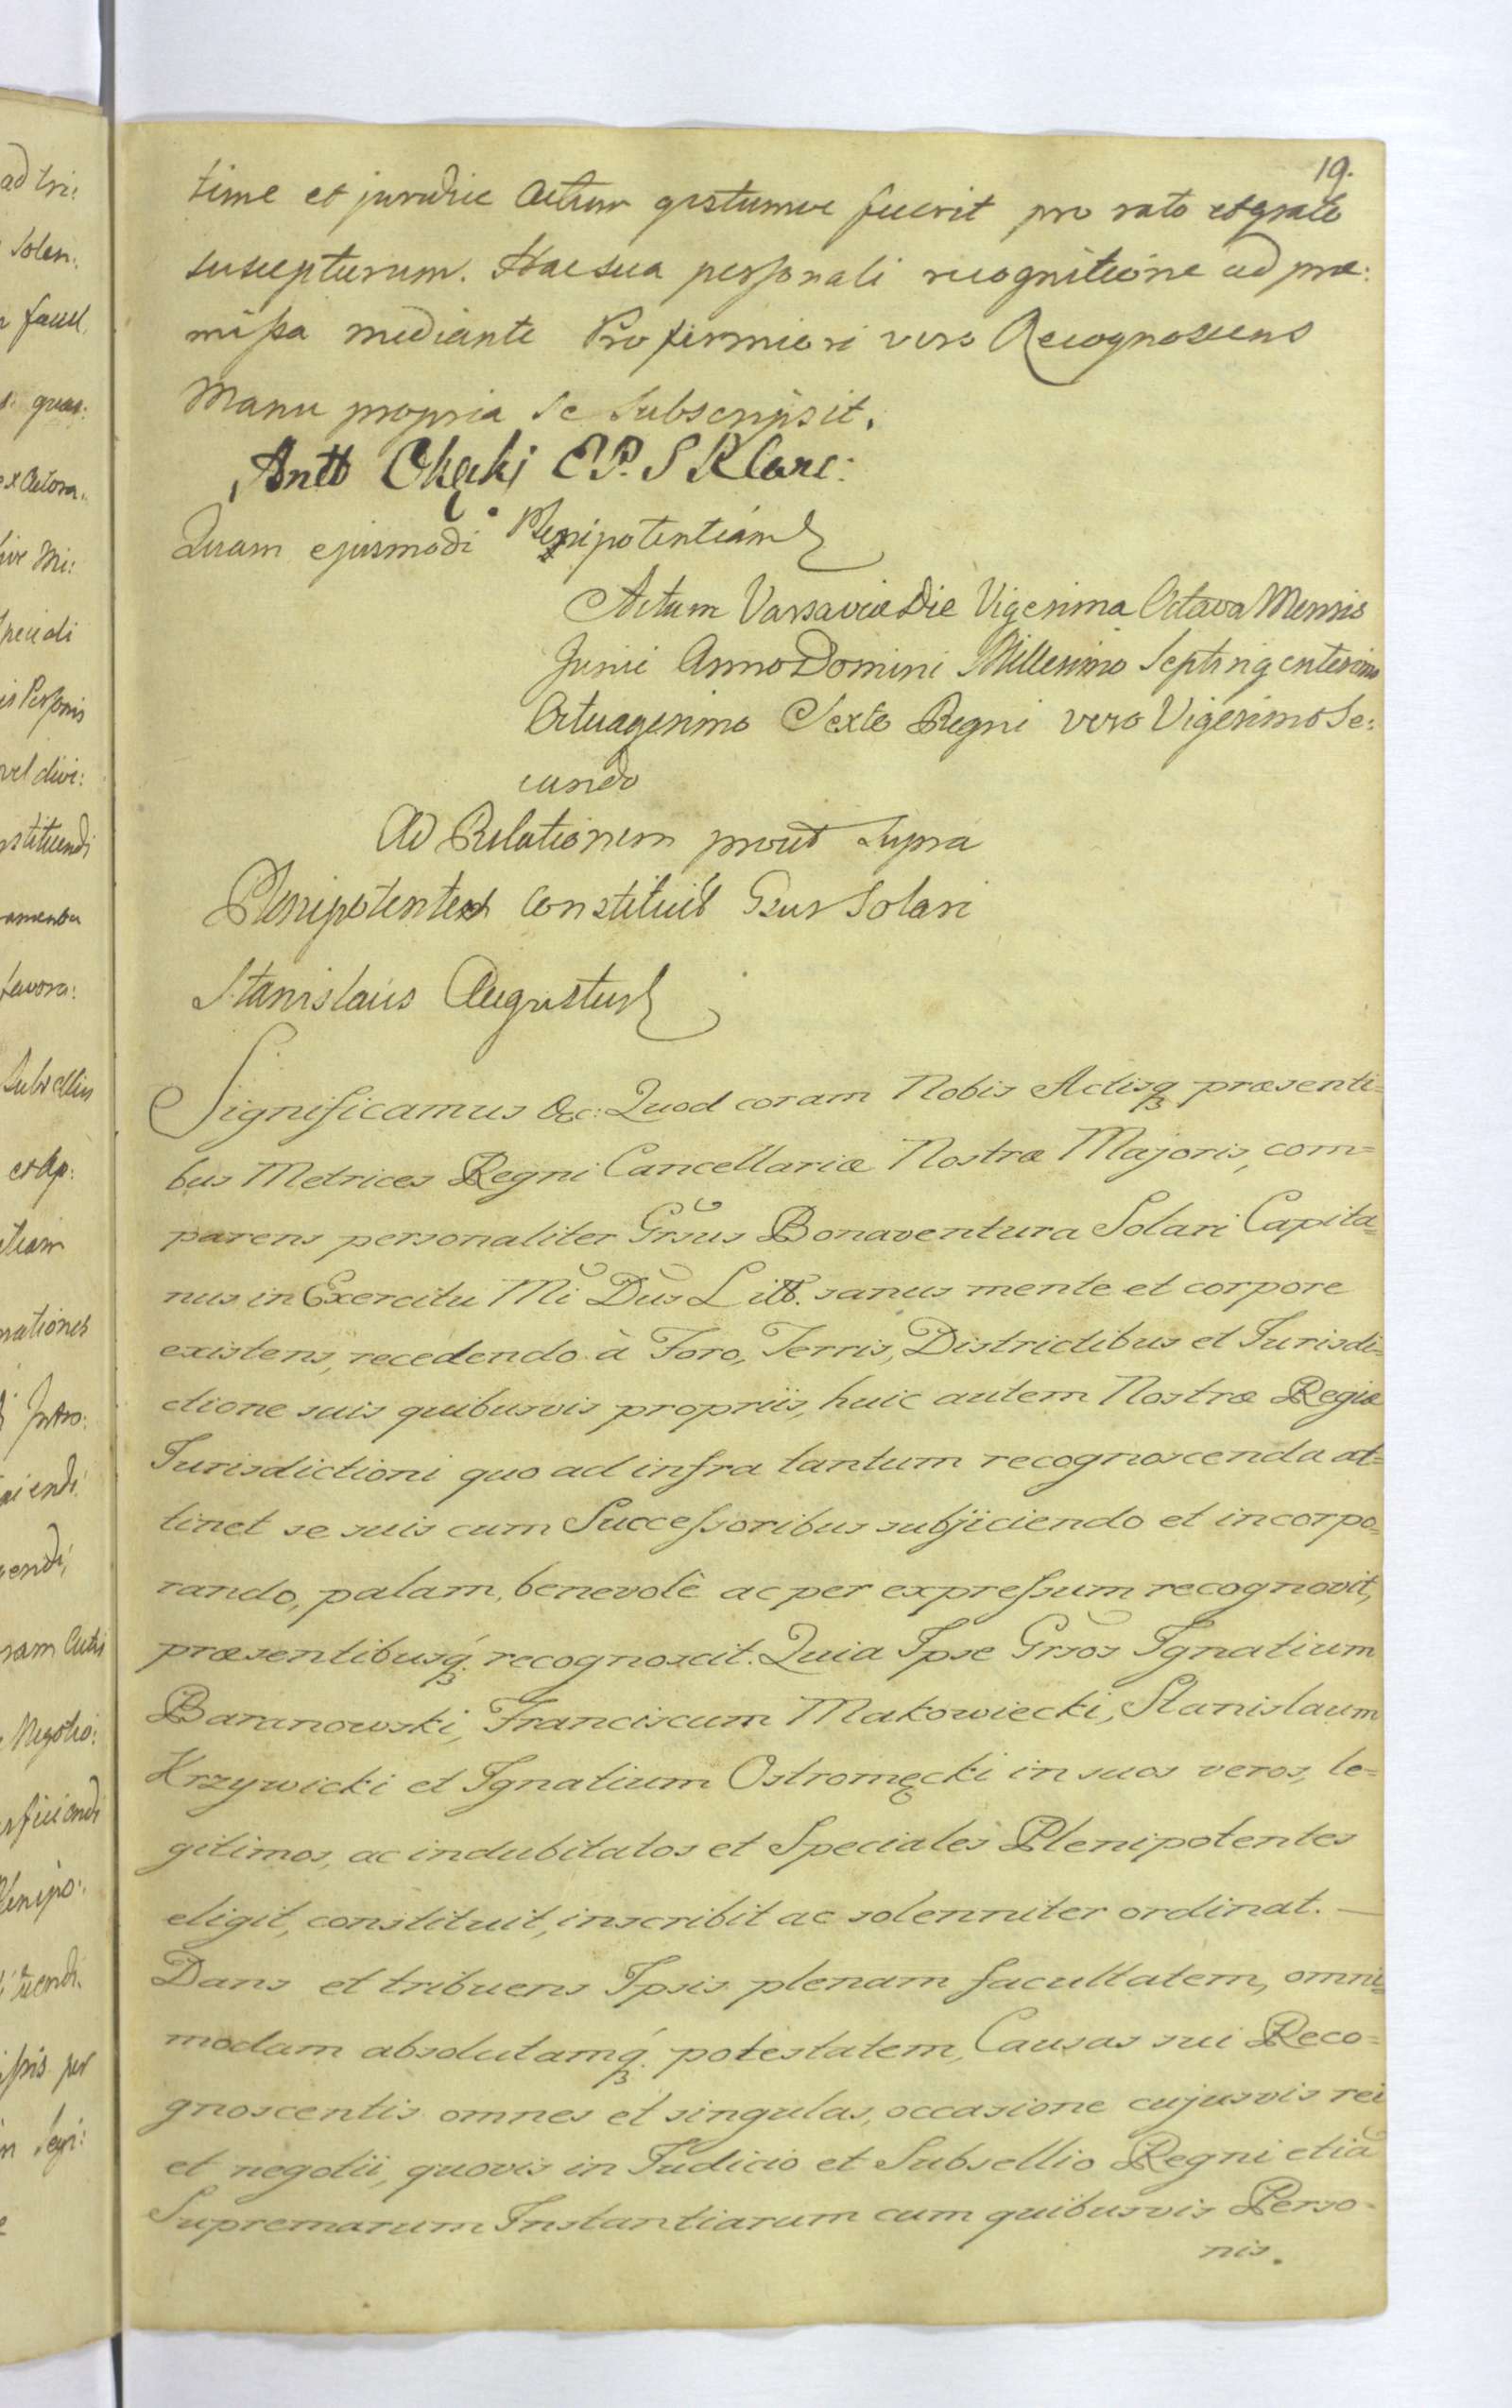 19.
time et juridice actum gestumve fuerit pro rato et grato
suscepturum. Hac sua personali recognitione ad præ:
missa mediante Pro firmiori vero Recognoscens
Manu propria se subscripsit.
Antt Okęcki E P. S R Canc:
Quam ejusmodi Plenipotentiam
Actum Varsaviæ Die Vigesima Octava Mensis
Junii Anno Domini Millesimo Septingentesimo
Octuagesimo Sexto Regni vero Vigesimo Se:
cundo
Ad Relationem prout supra
Plenipotentes constituit Gsus Solari
Stanislaus Augustus
Significamus &c: Quod coram Nobis Actisq præsenti=
bus Metrices Regni Cancellariæ Nostræ Majoris, com=
parens personaliter Grsus Bonaventura Solari Capita=
nus in Exercitu Mi Dus Litt. sanus mente et corpore
existens, recedendo à Foro, Terris, Districtibus et Jurisdi=
ctione suis quibusvis propriis, huic autem Nostræ Regiæ
Jurisdictioni quo ad infra tantum recognoscenda at=
tinet se suis cum Successoribus subjiciendo et incorpo=
rando, palam, benevolè ac per expressum recognovit,
præsentibusq. recognoscit. Quia Ipse Grsos Ignatium
Baranowski, Franciscum Makowiecki, Stanislaum
Krzywicki et Ignatium Ostromęcki in suos veros, le=
gitimos, ac indubitatos et Speciales Plenipotentes
eligit, constituit, inscribit ac solenniter ordinat. —
Dans et tribuens Ipsis plenam facultatem, omni=
modam absolutamq. potestatem, Causas sui Reco=
gnoscentis omnes et singulas, occasione cujusvis rei
et negotii, quovis in Judicio et Subsellio Regni etiã
Supremarum Instantiarum cum quibusvis Perso=
nis.